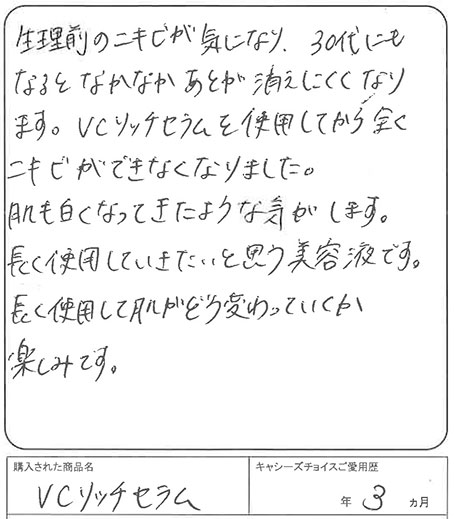 生理前のニキビが気になり、30代にも
なるとなかなかあとが消えにくくなり
ます。VCリッチセラムを使用してから全く
ニキビができなくなりました。
肌も白くなってきたような気がします。
長く使用していきたいと思う美容液です。
長く使用して肌がどう変わっていくか
楽しみです。
購入された商品名
キャシーズチョイスご愛用歴
VCリッチセラム
年 3 ヵ月